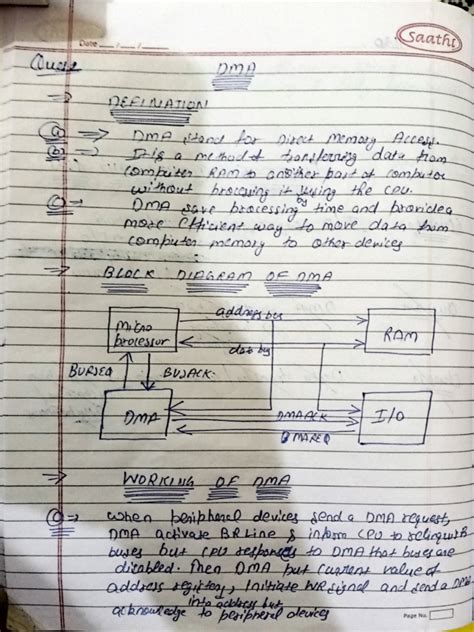 Saathi
Date __/__/__
Ques
DMA
⇒ DEFINATION
(a) ⇒ DMA stand for Direct Memory Access.
(b) = It is a method of transferring data from
computer RAM to another part of computer
without processing it using the CPU.
(c) = DMA save processing time and provides
more efficient way to move data from
computer memory to other devices
⇒ BLOCK DIAGRAM OF DMA
address bus
Micro
processor
RAM
data bus
BUSREQ
BUSACK
DMA
DMAACK
I/O
DMAREQ
⇒ WORKING OF DMA
⇒ when peripheral devices send a DMA request,
DMA activate BR Line & inform CPU to relinquish
buses but CPU responses to DMA that buses are
disabled. Then DMA put current value of
address registey, initiate WR signal and send a DMA
into address bus
acknowledge to peripheral devices
Page No.